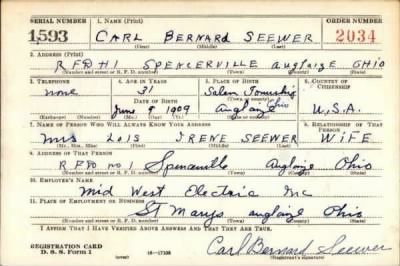 SERIAL NUMBER 1. NAME (Print) ORDER NUMBER
1,593 CARL BERNARD SEEWER 2034
(First) (Middle) (Last)
2. ADDRESS (Print)
RFD#1 SPENCERVILLE auglaize OHIO
(Number and street or R. F. D. number) (Town) (County) (State)
3. TELEPHONE 4. AGE IN YEARS 5. PLACE OF BIRTH 6. COUNTRY OF CITIZENSHIP
none 31 Salem Township
DATE OF BIRTH (Town or county)
June 1909 Auglaize Ohio U.S.A.
(Exchange) (Number) (Mo.) (Day) (Yr.) (State or country)
7. NAME OF PERSON WHO WILL ALWAYS KNOW YOUR ADDRESS 8. RELATIONSHIP OF THAT PERSON
Mrs LOIS IRENE SEEWER WIFE
(Mr., Mrs., Miss) (First) (Middle) (Last)
9. ADDRESS OF THAT PERSON
RFD no 1 Spencerville Auglaize Ohio
(Number and street or R. F. D. number) (Town) (County) (State)
10. EMPLOYER'S NAME
Mid West Electric Inc
11. PLACE OF EMPLOYMENT OR BUSINESS
St Marys auglaize Ohio
(Number and street or R. F. D. number) (Town) (County) (State)
I AFFIRM THAT I HAVE VERIFIED ABOVE ANSWERS AND THAT THEY ARE TRUE.
REGISTRATION CARD
D. S. S. Form 1 16—17105 Carl Bernard Seewer
(Registrant's signature)